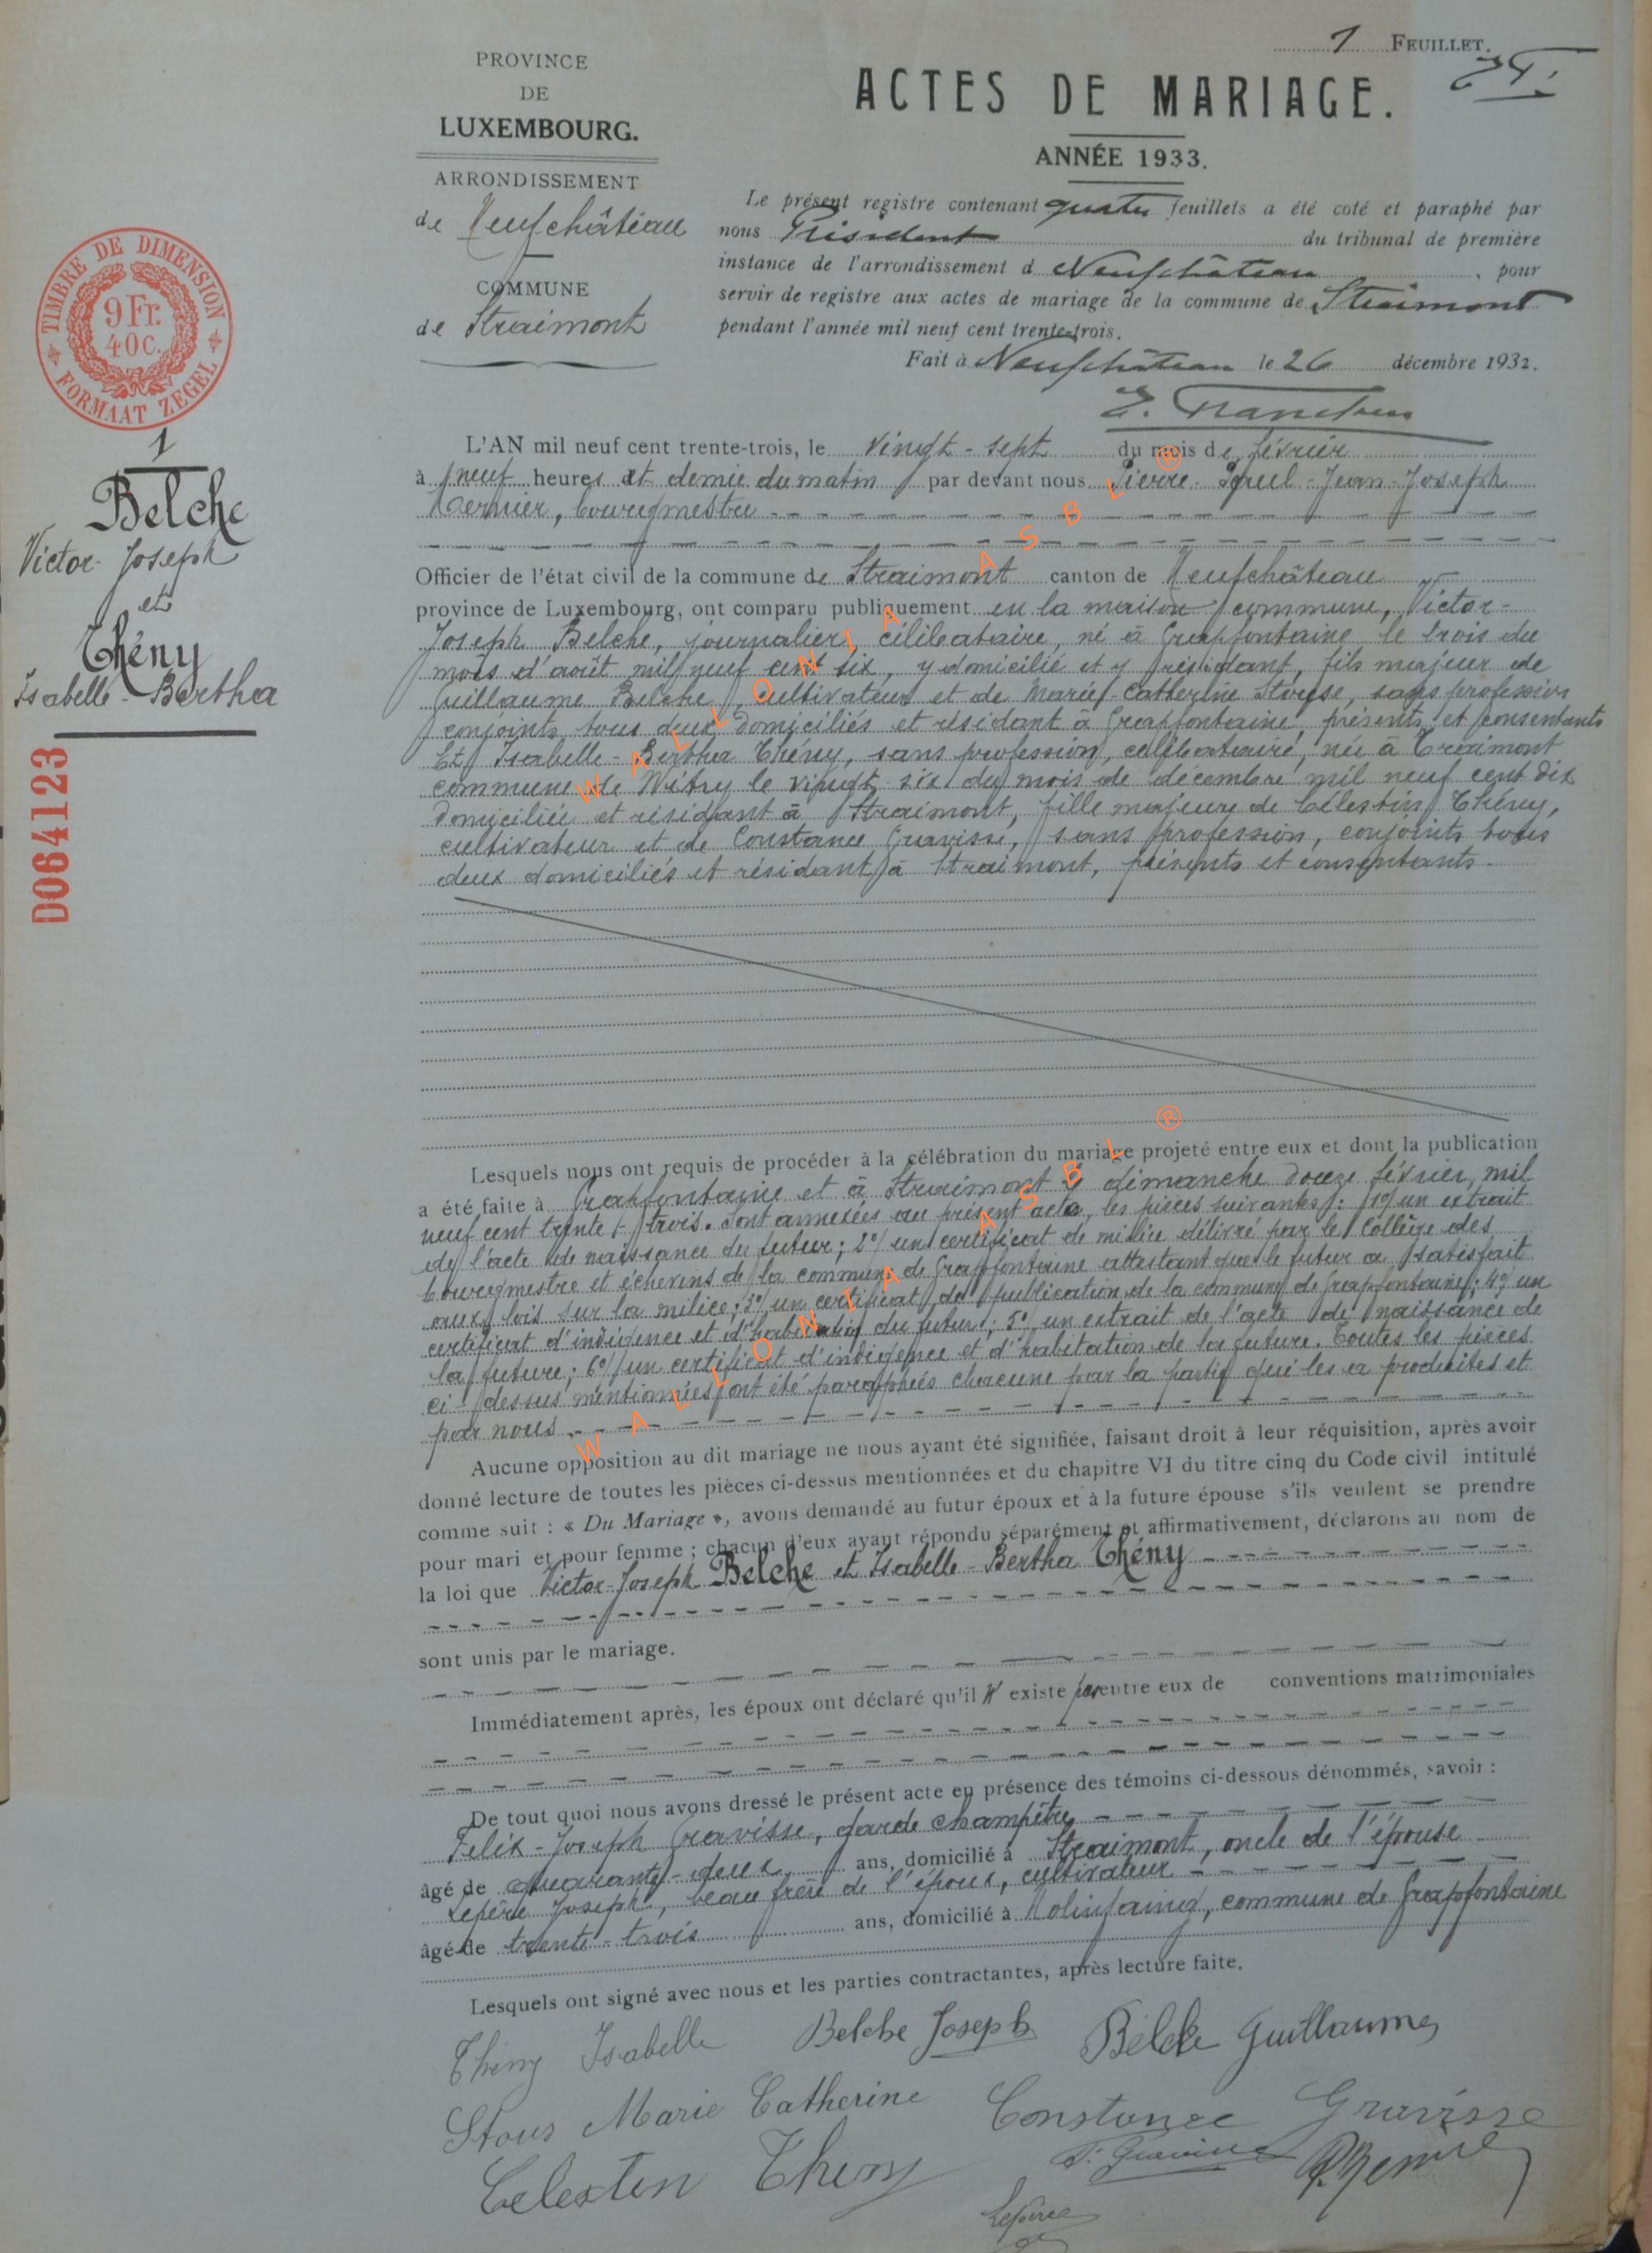 1 FEUILLET.
PROVINCE
DE
LUXEMBOURG.
ARRONDISSEMENT
de Neufchâteau
COMMUNE
de Straimont
ACTES DE MARIAGE.
ANNÉE 1933.
Le présent registre contenant quatre feuillets a été coté et paraphé par
nous Président du tribunal de première
instance de l'arrondissement d Neufchâteau, pour
servir de registre aux actes de mariage de la commune de Straimont
pendant l'année mil neuf cent trente-trois.
Fait à Neufchâteau le 26 décembre 1932.
TIMBRE DE DIMENSION
9 Fr.
40 C.
FORMAAT ZEGEL
1
Belche
Victor-Joseph
et
Thény
Isabelle-Bertha
D064123
L'AN mil neuf cent trente-trois, le vingt-sept du mois de février
à neuf heures et demie du matin par devant nous Pierre-Jean-Joseph
bourgmestre
Officier de l'état civil de la commune de Straimont canton de Neufchâteau
province de Luxembourg, ont comparu publiquement en la maison commune, Victor-
Joseph Belche, journalier, célibataire, né à Grapfontaine le trois du
mois d'août mil neuf cent six, y domicilié et y résidant, fils majeur de
Guillaume Belche, cultivateur et de Marie-Catherine, sans profession
conjoints tous deux domiciliés et résidant à Grapfontaine, présents et consentants
Et Isabelle-Bertha Thény, sans profession, célibataire, née à Traimont
commune de Witry le vingt-six du mois de décembre mil neuf cent dix
domiciliée et résidant à Straimont, fille majeure de Célestin Thény,
cultivateur et de Constance Gravisse, sans profession, conjoints tous
deux domiciliés et résidant à Straimont, présents et consentants.
Lesquels nous ont requis de procéder à la célébration du mariage projeté entre eux et dont la publication
a été faite à Grapfontaine et à Straimont le dimanche douze février mil
neuf cent trente-trois. Sont annexées au présent acte, les pièces suivantes: 1°/ un extrait
de l'acte de naissance du futur; 2°/ un certificat de milice délivré par le Collège des
bourgmestre et échevins de la commune de Grapfontaine attestant que le futur a satisfait
aux lois sur la milice; 3°/ un certificat de publication de la commune de Grapfontaine; 4°/ un
certificat d'indigence et d'habitation du futur; 5°/ un extrait de l'acte de naissance de
la future; 6°/ un certificat d'indigence et d'habitation de la future. Toutes les pièces
ci-dessus mentionnées ont été paraphées chacune par la partie qui les a produites et
par nous.
Aucune opposition au dit mariage ne nous ayant été signifiée, faisant droit à leur réquisition, après avoir
donné lecture de toutes les pièces ci-dessus mentionnées et du chapitre VI du titre cinq du Code civil intitulé
comme suit : « Du Mariage », avons demandé au futur époux et à la future épouse s'ils veulent se prendre
pour mari et pour femme ; chacun d'eux ayant répondu séparément et affirmativement, déclarons au nom de
la loi que Victor-Joseph Belche et Isabelle-Bertha Thény
sont unis par le mariage.
Immédiatement après, les époux ont déclaré qu'il n'existe pas entre eux de conventions matrimoniales
De tout quoi nous avons dressé le présent acte en présence des témoins ci-dessous dénommés, savoir :
Félix-Joseph Gravisse, garde champêtre
âgé de quarante-deux ans, domicilié à Straimont, oncle de l'épouse
Joseph, beau frère de l'époux, cultivateur
âgé de trente-trois ans, domicilié à Nolinfaing, commune de Grapfontaine
Lesquels ont signé avec nous et les parties contractantes, après lecture faite.
Thény Isabelle Belche Joseph Belche Guillaume
Stous Marie Catherine Constance Gravisse
Celestin Theny
WALLONIA ASBL ®
WALLONIA ASBL ®